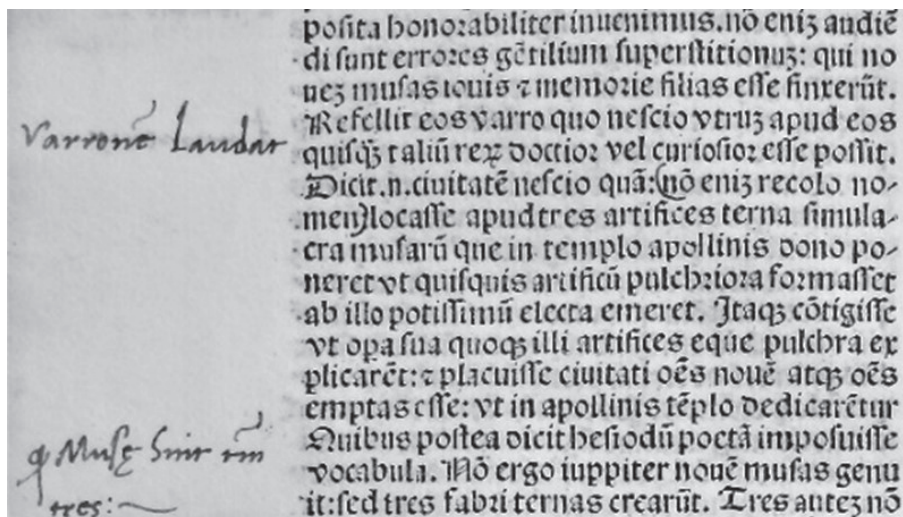 posita honorabiliter inuenimus. nō eniȝ audiē
di sunt errores gētilium superstitionuȝ: qui no
ueȝ musas iouis ⁊ memorie filias esse finxerūt.
Refellit eos varro quo nescio vtruȝ apud eos
quisqȝ̄ taliū reꝝ doctior vel curiosior esse possit.
Dicit .n. ciuitatē nescio quā: (nō eniȝ recolo no-
men) locasse apud tres artifices terna simula-
cra musarū que in templo apollinis dono po-
neret vt quisquis artificū pulchriora formasset
ab illo potissimū electa emeret. Itaqȝ cōtigisse
vt opa sua quoqȝ illi artifices eque pulchra ex
plicarēt: ⁊ placuisse ciuitati oēs nouē atqȝ oēs
emptas esse: vt in apollinis tēplo dedicarētur
Quibus postea dicit hesiodū poetā imposuisse
vocabula. Nō ergo iuppiter nouē musas genu
it: sed tres fabri ternas crearūt. Tres auteȝ nō
Varronē laudat
ꝙ Musę sint
tres: